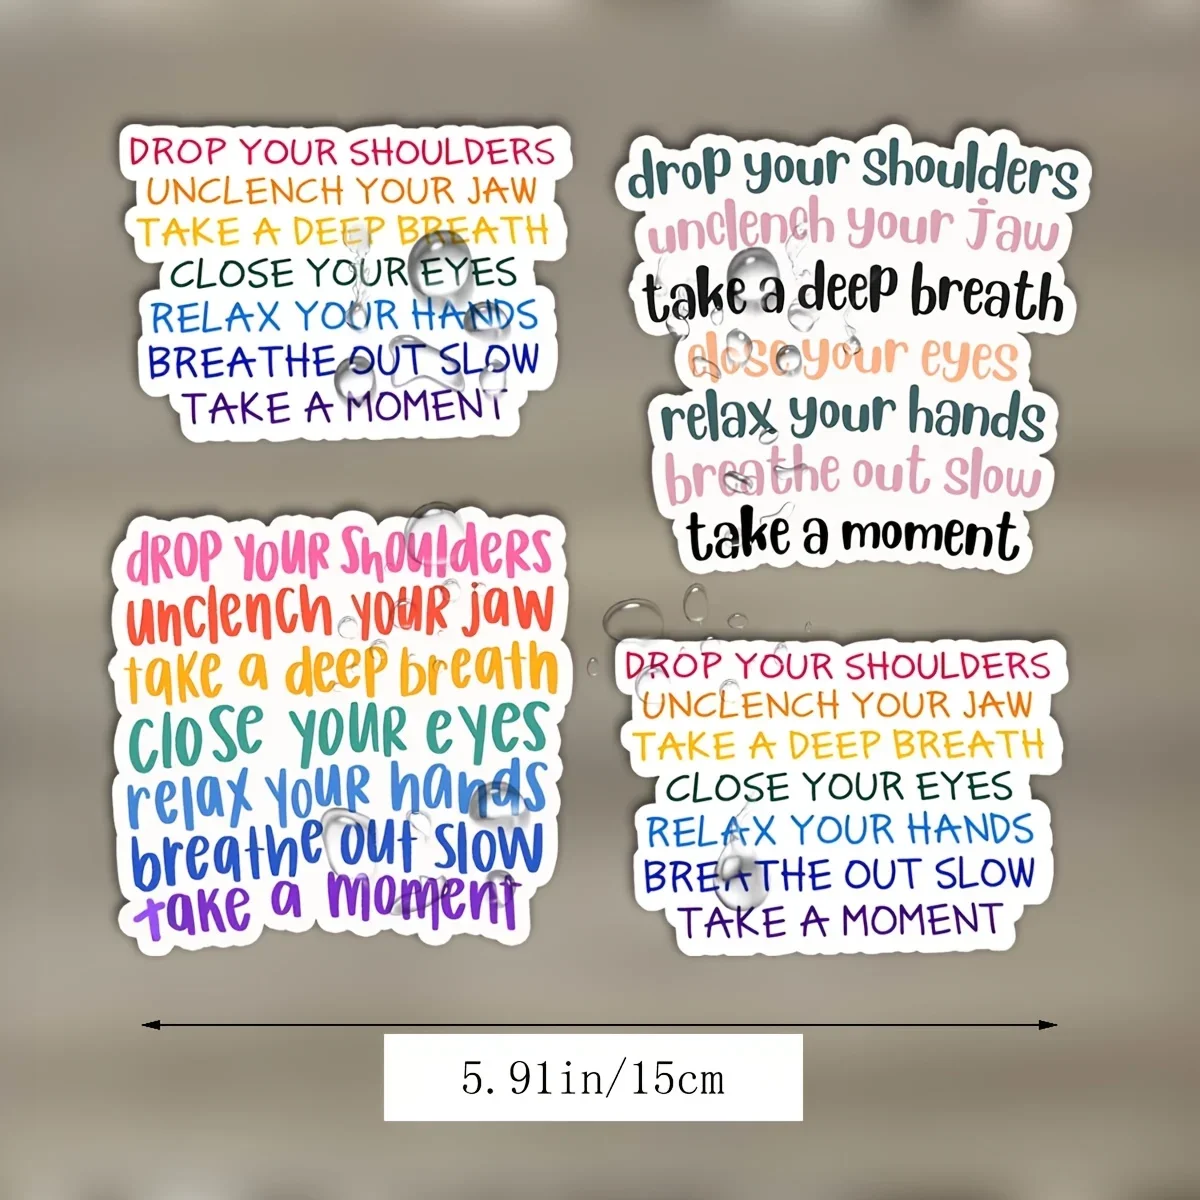 DROP YOUR SHOULDERS
UNCLENCH YOUR JAW
TAKE A DEEP BREATH
CLOSE YOUR EYES
RELAX YOUR HANDS
BREATHE OUT SLOW
TAKE A MOMENT
drop your shoulders
unclench your jaw
take a deep breath
close your eyes
relax your hands
breathe out slow
take a moment
dROP YOUR ShOUldERS
unclench YOUR jaw
take a deep breath
close YOUR eyes
relax YOUR hands
breathe out slow
take a moment
DROP YOUR SHOULDERS
UNCLENCH YOUR JAW
TAKE A DEEP BREATH
CLOSE YOUR EYES
RELAX YOUR HANDS
BREATHE OUT SLOW
TAKE A MOMENT
5.91in/15cm